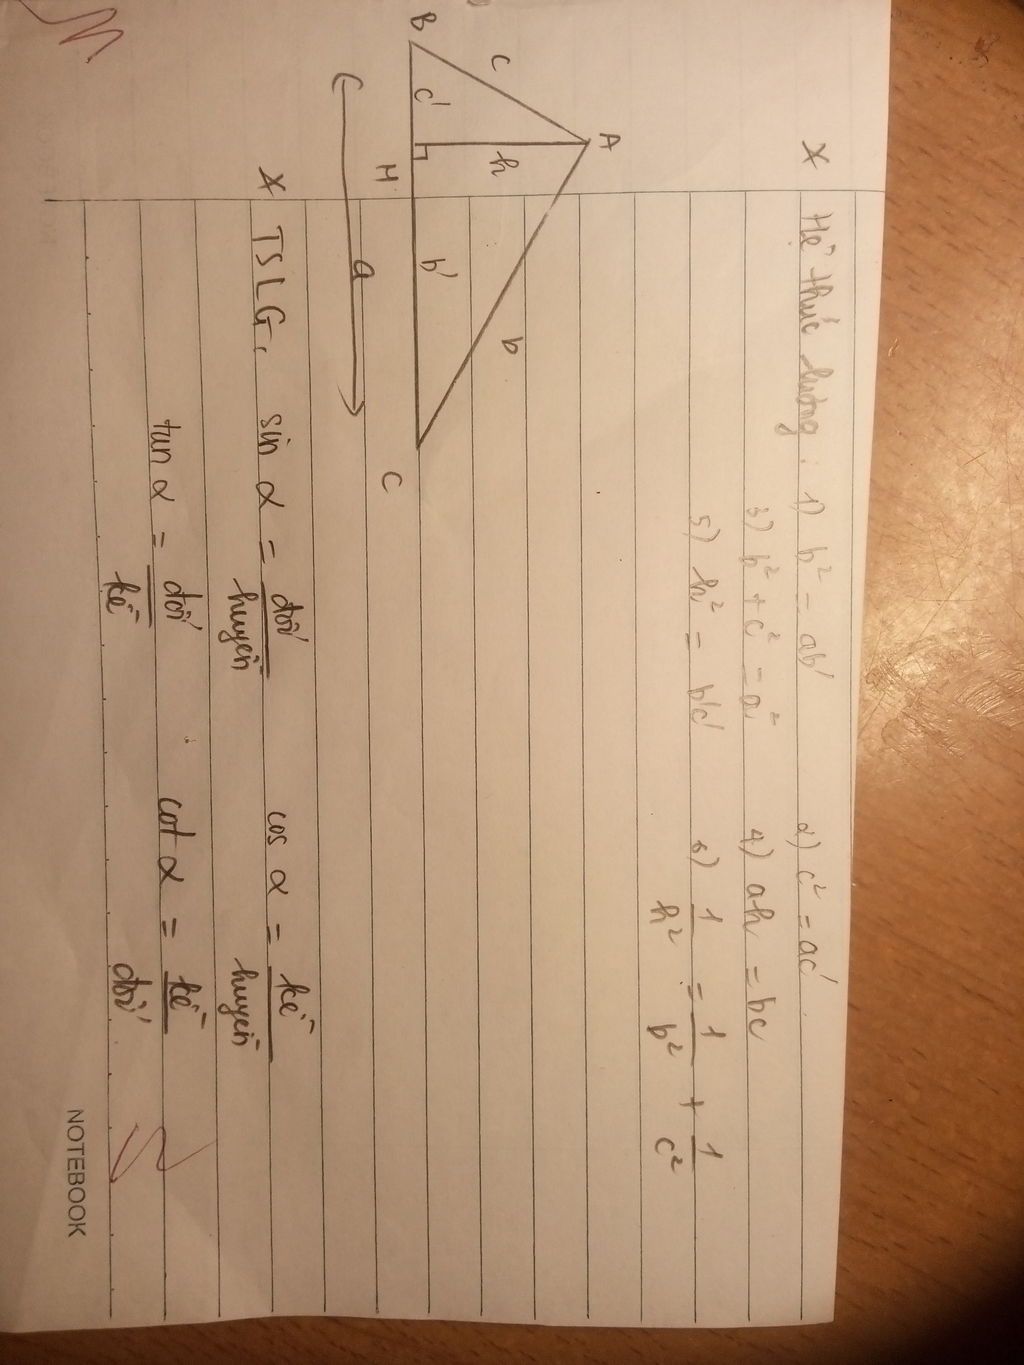 * Hệ thức lượng: 1) b² = ab' 2) c² = ac'
3) b² + c² = a² 4) ah = bc
5) h² = b'c' 6) 1/h² = 1/b² + 1/c²
A
c h b
B c' H b' C
a
* TSLG, sin α = đối/huyền cos α = kề/huyền
tan α = đối/kề cot α = kề/đối
NOTEBOOK